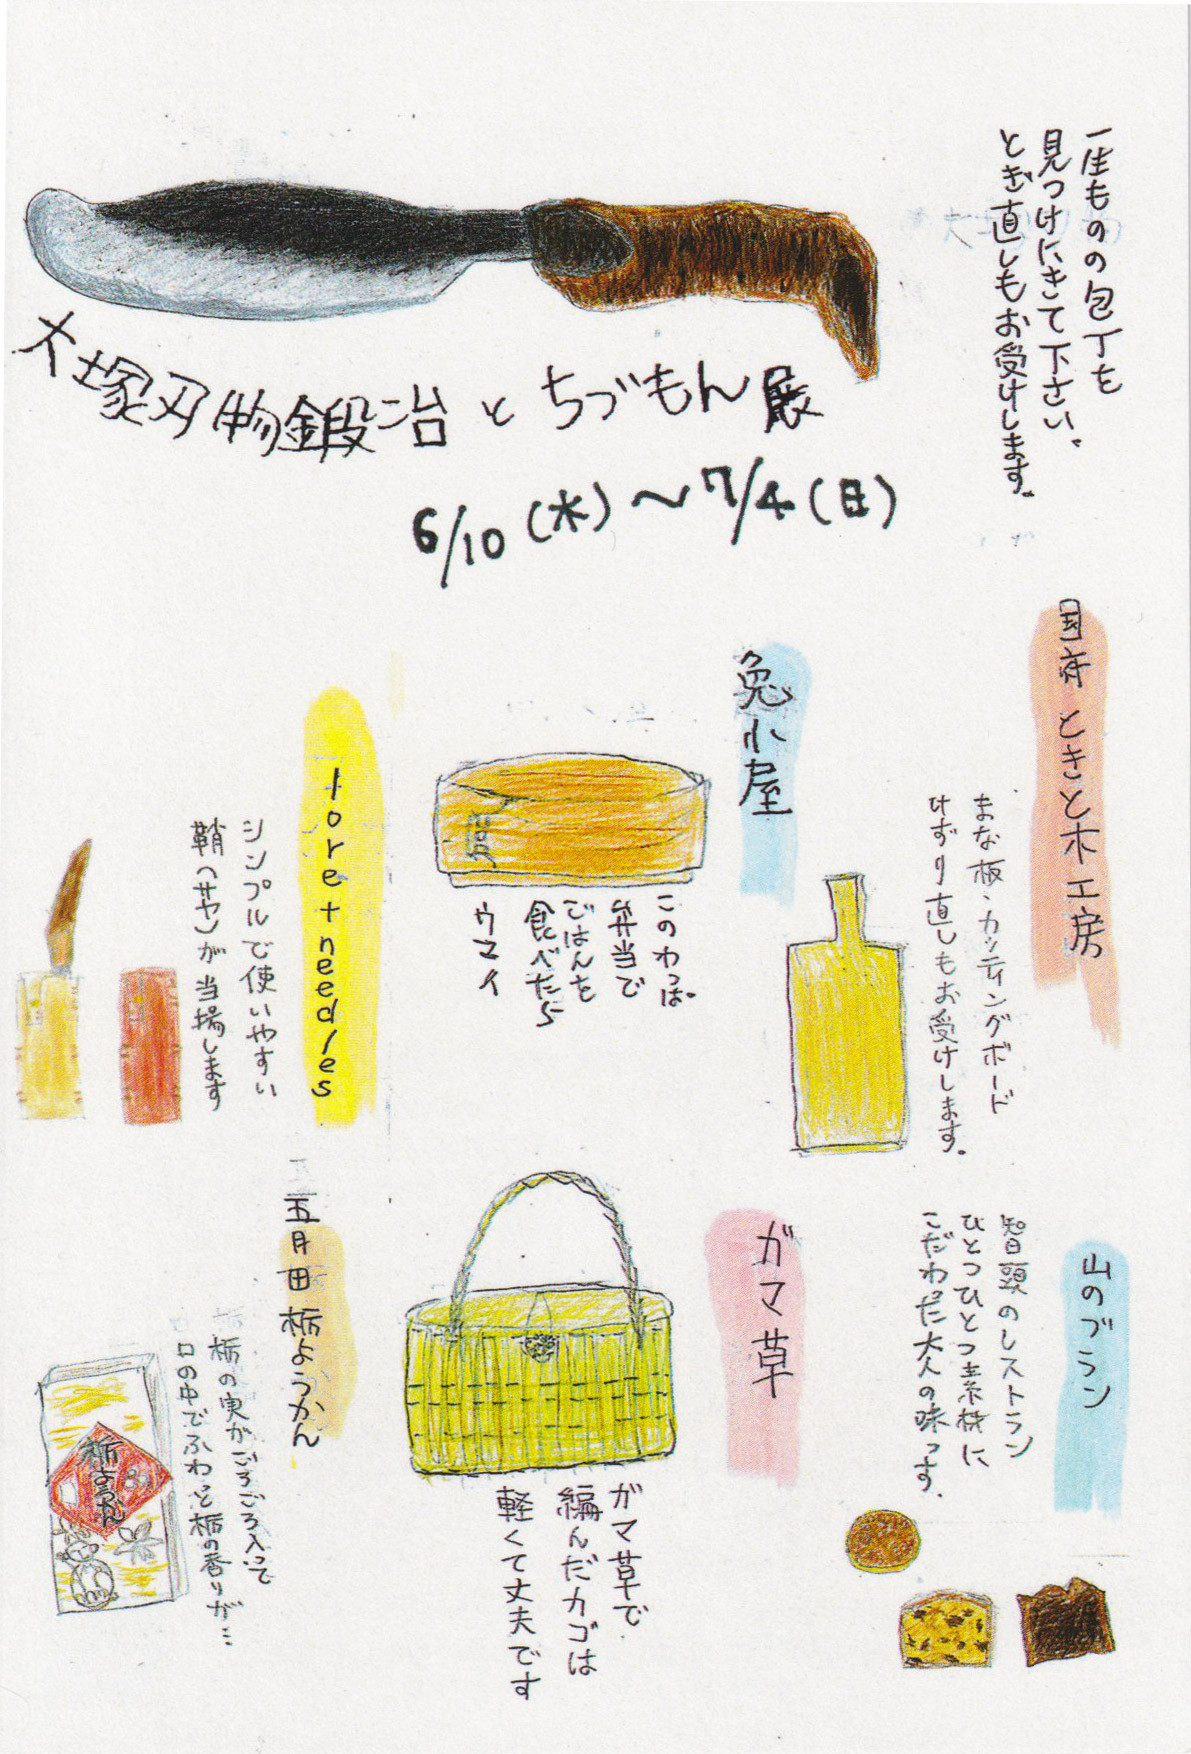 一生ものの包丁を
見つけにきて下さい。
とぎ直しもお受けします。
大塚刃物鍛冶とちづもん展
6/10(水)〜7/4(日)
国府 ときとき木工房
まな板・カッティングボード
けずり直しもお受けします。
兎小屋
このわっぱ
弁当で
ごはんを
食べたら
ウマイ
loret needles
シンプルで使いやすい
鞘(サヤ)が当場します
山のブラン
智頭のレストラン
ひとつひとつ素材に
こだわった大人の味っす.
ガマ草
ガマ草で
編んだカゴは
軽くて丈夫です
五月田 栃ようかん
栃の実がごろごろ入って
口の中でふわっと栃の香りが…
栃ようかん